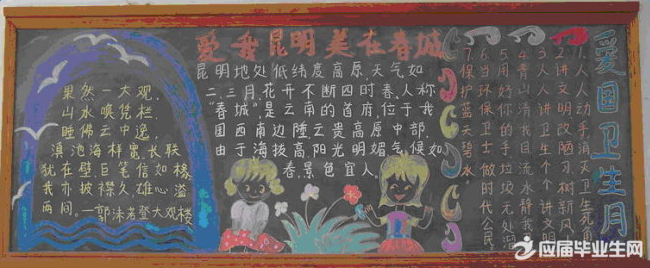 爱我昆明美在春城
果然一大观,
山水唤凭栏,
睡佛云中逸,
滇池海样宽,长联
犹在壁巨笔信如椽
我亦披襟久雄心溢
两间。—郭沫若登大观楼
昆明地处低纬度高原,天气如
二、三月,花开不断四时春,人称
“春城”,是云南的首府,位于我
国西南边陲云贵高原中部,
由于海拔高阳光明媚气候如
春,景色宜人。
爱国卫生月
1.人人动手消灭卫生死角
2.讲文明改陋习树新风
3.人人讲卫生个个讲文明
4.青山清我目流水静我
5.用好你的手垃圾无处溜
6.当环保卫士做时代公民
7.保护蓝天碧水。
应届毕业生网